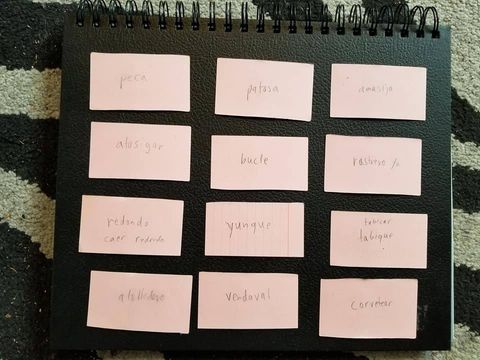 peca
patosa
amasijo
atosigar
bucle
rastrero
redondo
caer redondo
yunque
tabicar
tabique
atolladero
vendaval
corvetear